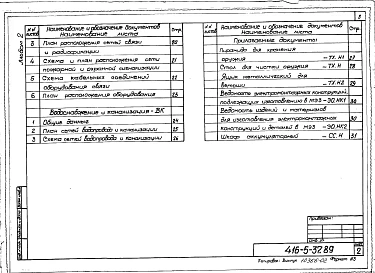 Альбом 2
№№ листа
Наименование и обозначение документов
Наименование листа
Стр.
3 План расположения сетей связи
и радиофикации 20
4 Схема и план расположения сети
пожарной и охранной сигнализации 21
5 Схема кабельных соединений
оборудования связи 22
6 План расположения оборудования 23
Водоснабжение и канализация - ВК
1 Общие данные 24
2 План сетей водопровода и канализации 25
3 Схема сетей водопровода и канализации 26
№№ листа
Наименование и обозначение документов
Наименование листа
Стр.
Прилагаемые документы
Пирамида для хранения
оружия - ТХ.Н1 27
Стол для чистки оружия - ТХ.Н 28
Ящик металлический для
ветоши - ТХ.Н2 29
Ведомость электромонтажных конструкций,
подлежащих изготовлению в МЭЗ - ЭО.НК1 30
Ведомость изделий и материалов
для изготовления электромонтажных
конструкций и деталей в МЭЗ - ЭО.НК2 30
Шкаф аккумуляторный - СС.Н 31
Привязан
416-5-32.89
2
Формат А3